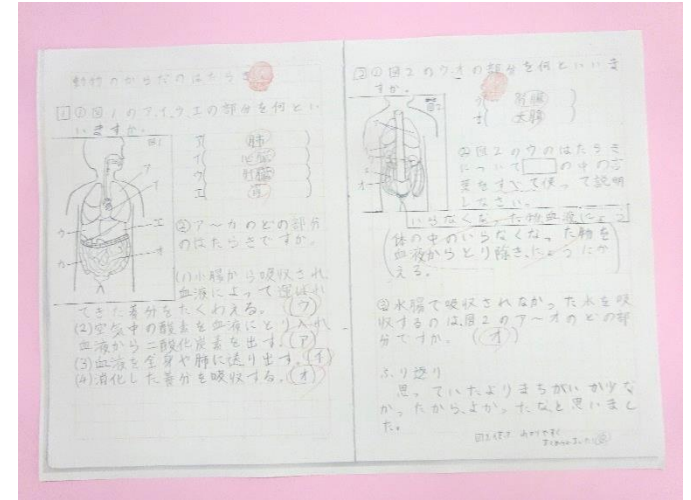 動物のからだのはたらき
1 ① 図1のア,イ,ウ,エの部分を何とい
いますか。
図1
ア( 肺 )
イ( 心臓 )
ウ( 肝臓 )
エ( 胃 )
ア
イ
エ
ウ
カ
オ
② ア～カのどの部分
のはたらきですか。
(1)小腸から吸収され,
血液によって運ばれ
てきた養分をたくわえる。(ウ)
(2)空気中の酸素を血液にとり入れ,
血液から二酸化炭素を出す。(ア)
(3)血液を全身や肺に送り出す。(イ)
(4)消化した養分を吸収する。(オ)
2 ① 図2のウ,オの部分を何といいま
すか。
図2
ウ( 腎臓 )
オ( 大腸 )
② 図2のウのはたらき
について□の中の言
葉をすべて使って説明
しなさい。
いらなくなった物 血液 にょう
体の中のいらなくなった物を
血液からとり除き,にょうにか
える。
③ 小腸で吸収されなかった水を吸
収するのは,図2のア～オのどの部
分ですか。(オ)
ふり返り
思っていたよりまちがいが少な
かったから,よかったなと思いまし
た。